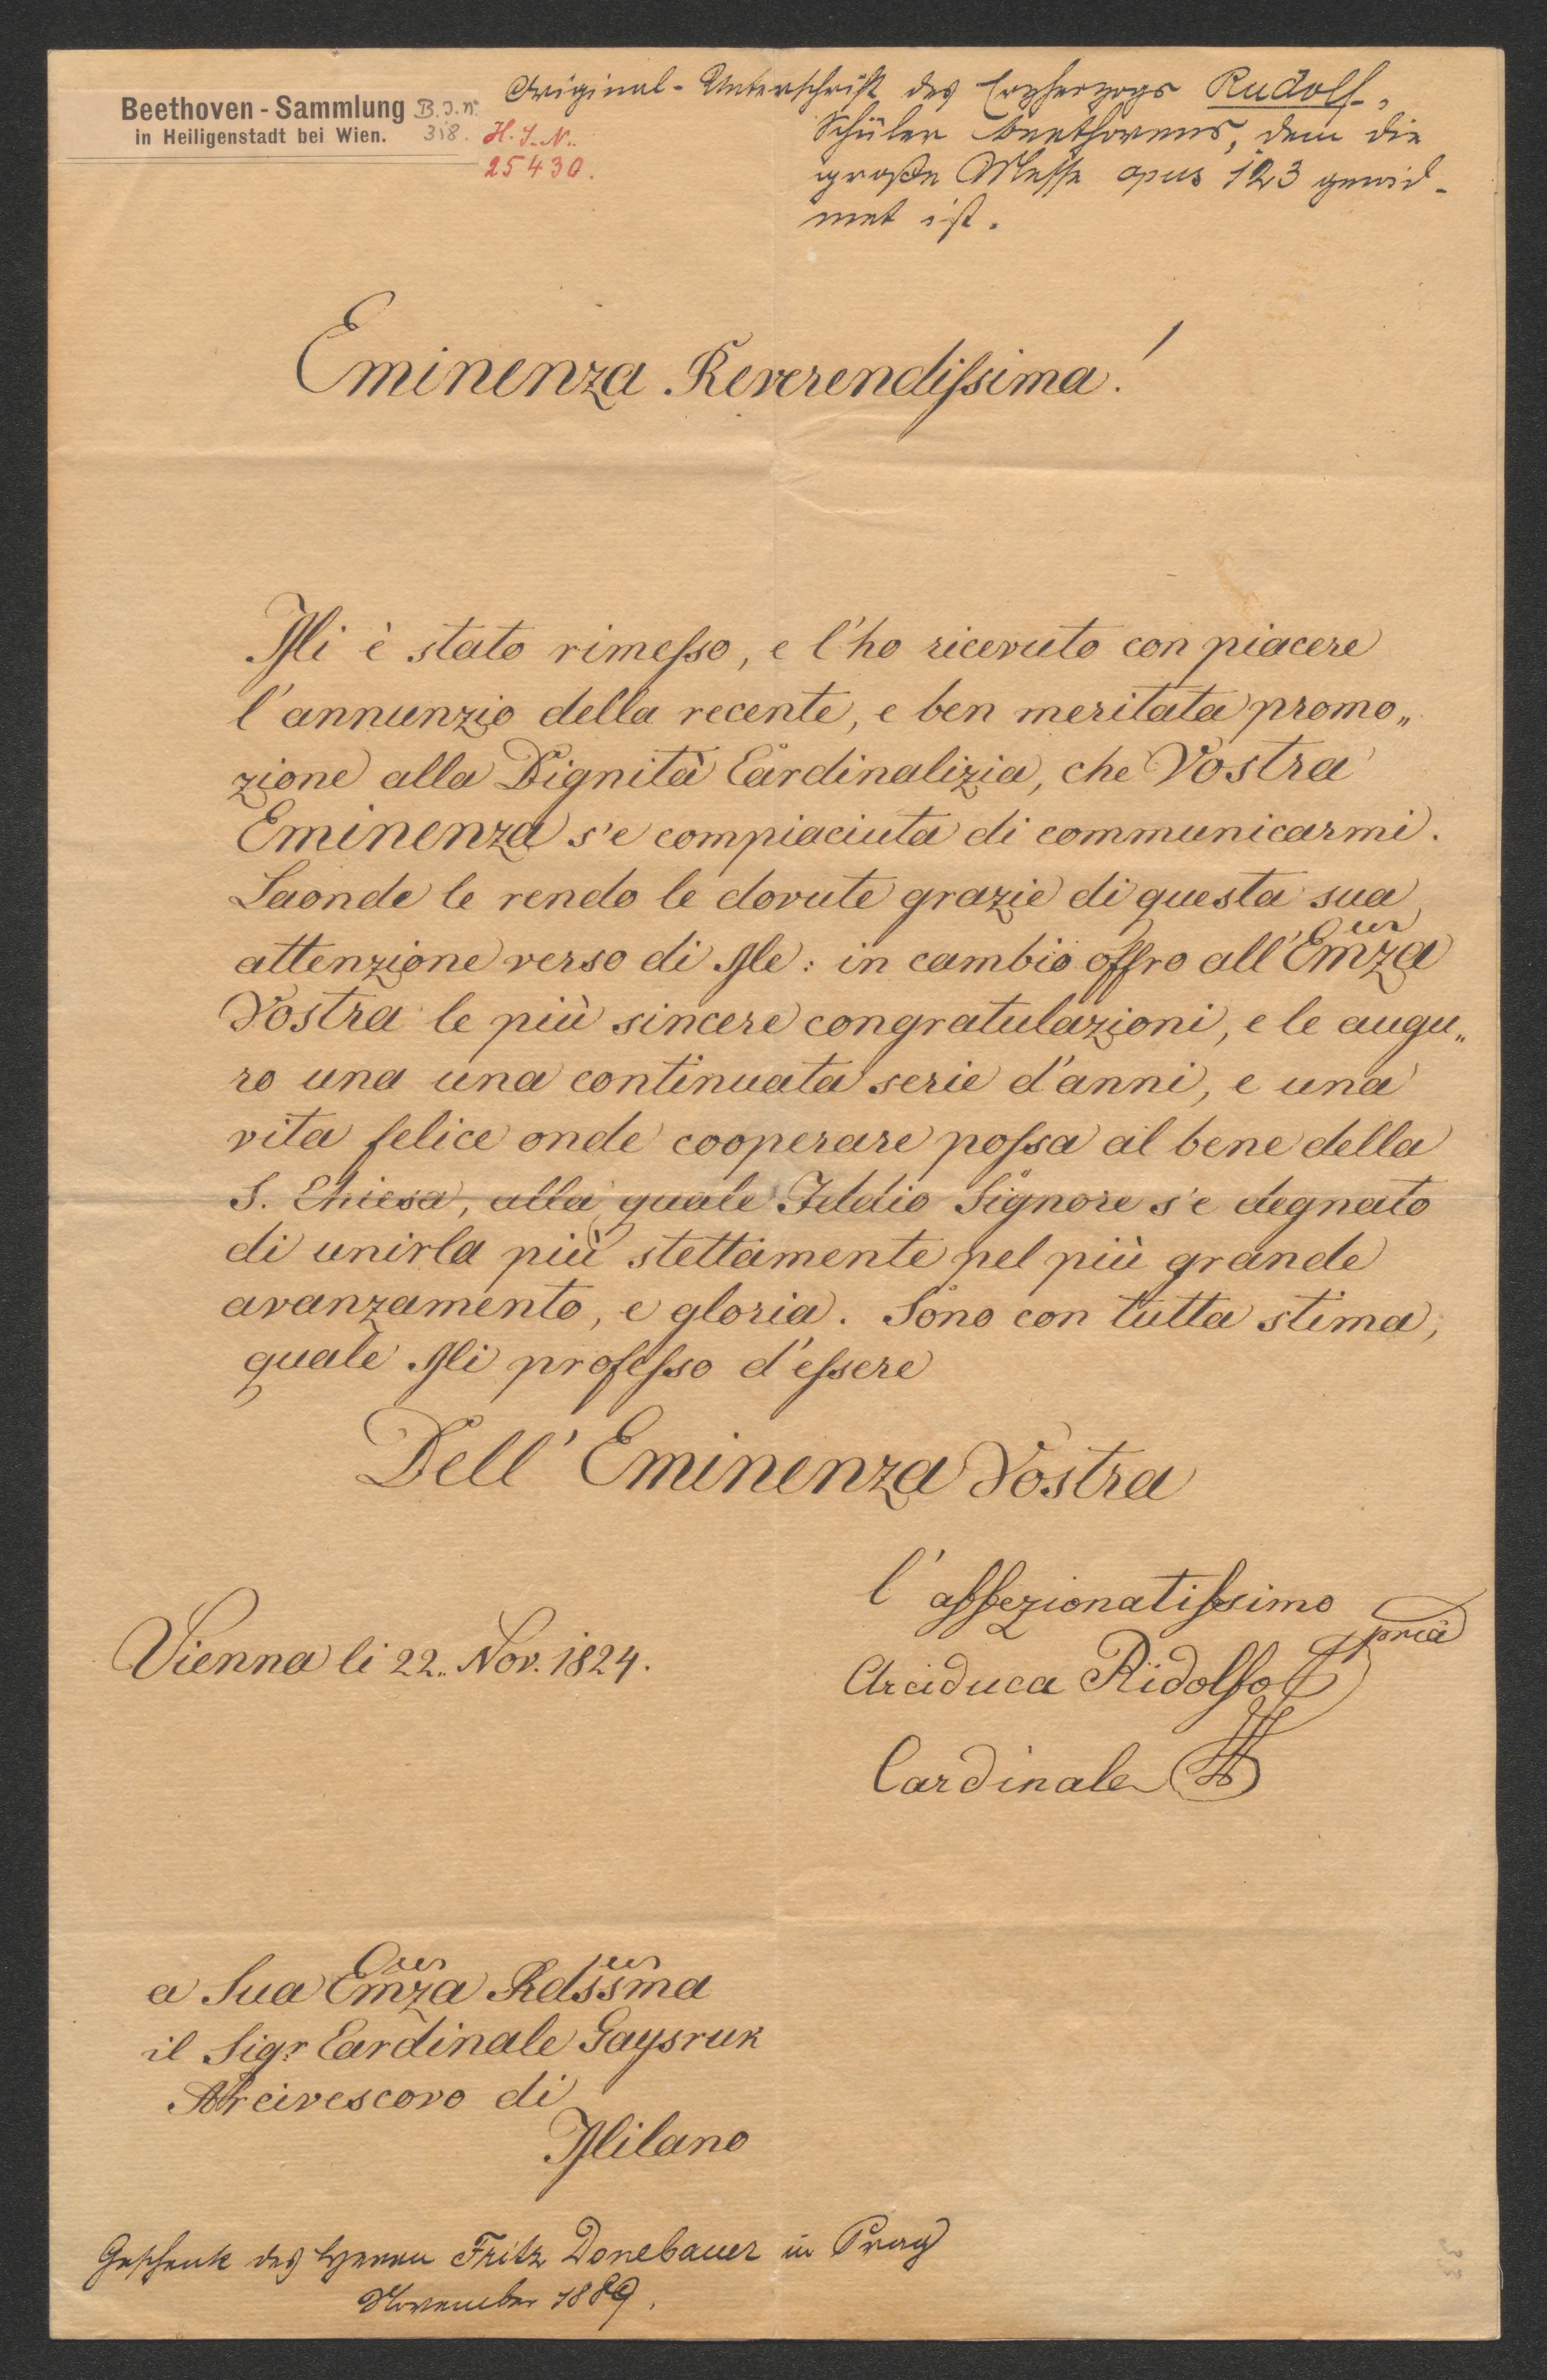 Beethoven-Sammlung
in Heiligenstadt bei Wien.
B. J. N.
318.
H. J. N.
25430.
Original-Unterschrift des Erzherzogs Rudolf,
Schüler Beethovens, dem die
große Messe opus 123 gewid-
met ist.
Eminenza Reverendissima!
Mi è stato rimesso, e l'ho ricevuto con piacere
l'annunzio della recente, e ben meritata promo„
zione alla Dignità Cardinalizia, che Vostra
Eminenza s'e compiaciuta di communicarmi.
Laonde le rendo le dovute grazie di questa sua
attenzione verso di Me: in cambio offro all'Emza
Vostra le più sincere congratulazioni, e le augu„
ro una una continuata serie d'anni, e una
vita felice onde cooperare possa al bene della
S. Chiesa, alla quale Iddio Signore s'e degnato
di unirla più stettamente pel più grande
avanzamento, e gloria. Sono con tutta stima,
quale Mi professo d'essere
Dell' Eminenza Vostra
l'affezionatissimo
Vienna li 22. Nov. 1824.
Arciduca Ridolfo pria
Cardinale
a Sua Emza Rdssma
il Sigr Cardinale Gaysruk
Arcivescovo di
Milano
Geschenk des Herrn Fritz Donebauer in Prag
November 1889.